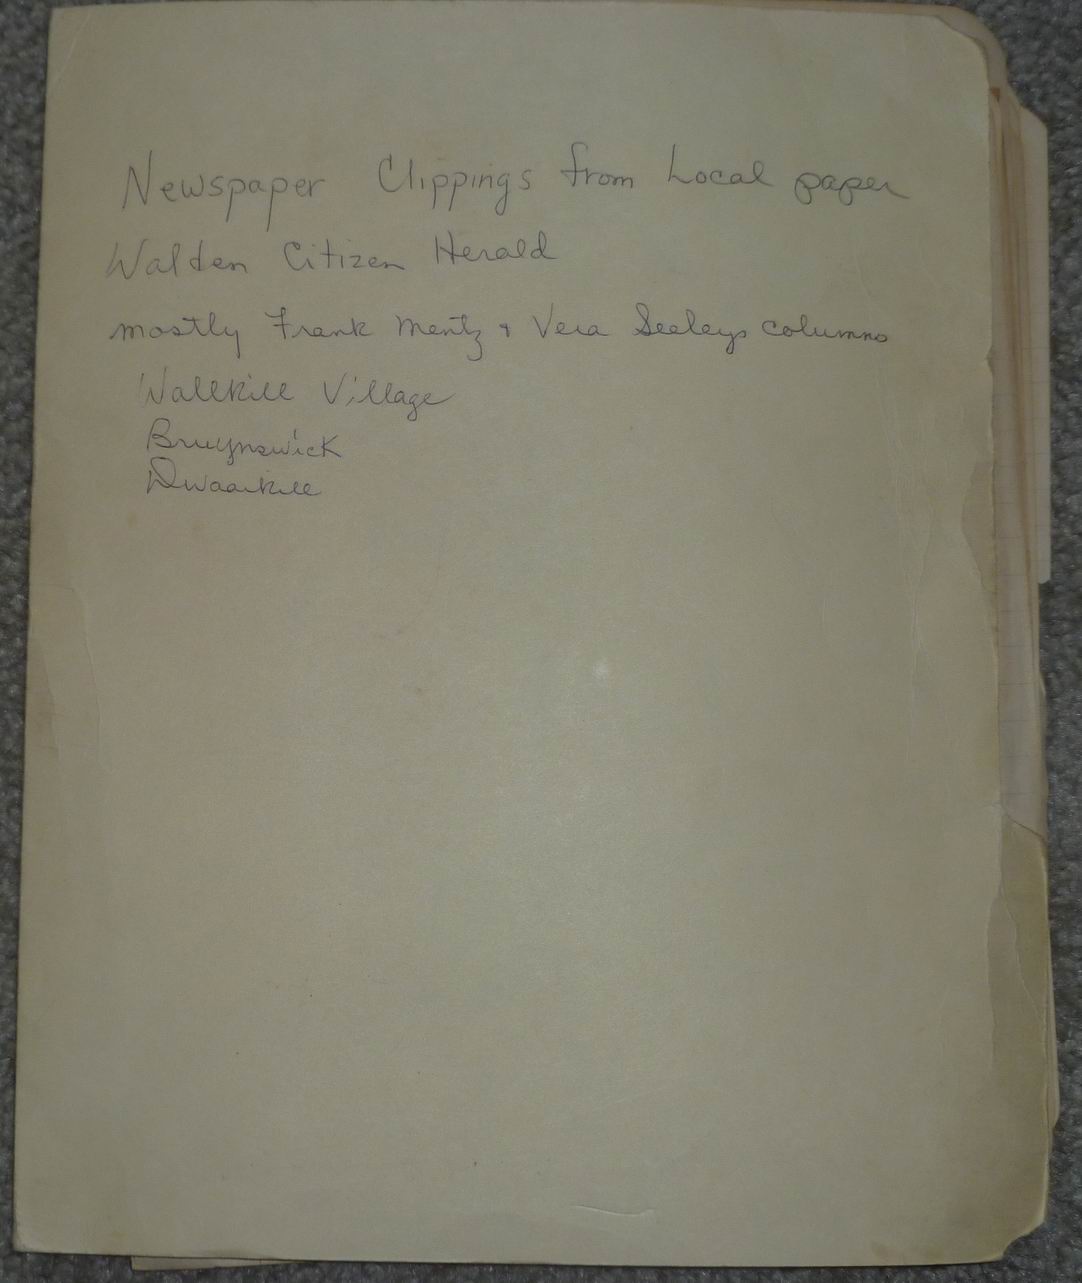 Newspaper Clippings from Local paper
Walden Citizen Herald
mostly Frank Mentz & Vera Seeleys columns
Wallkill Village
Bruynswick
Dwaarkill